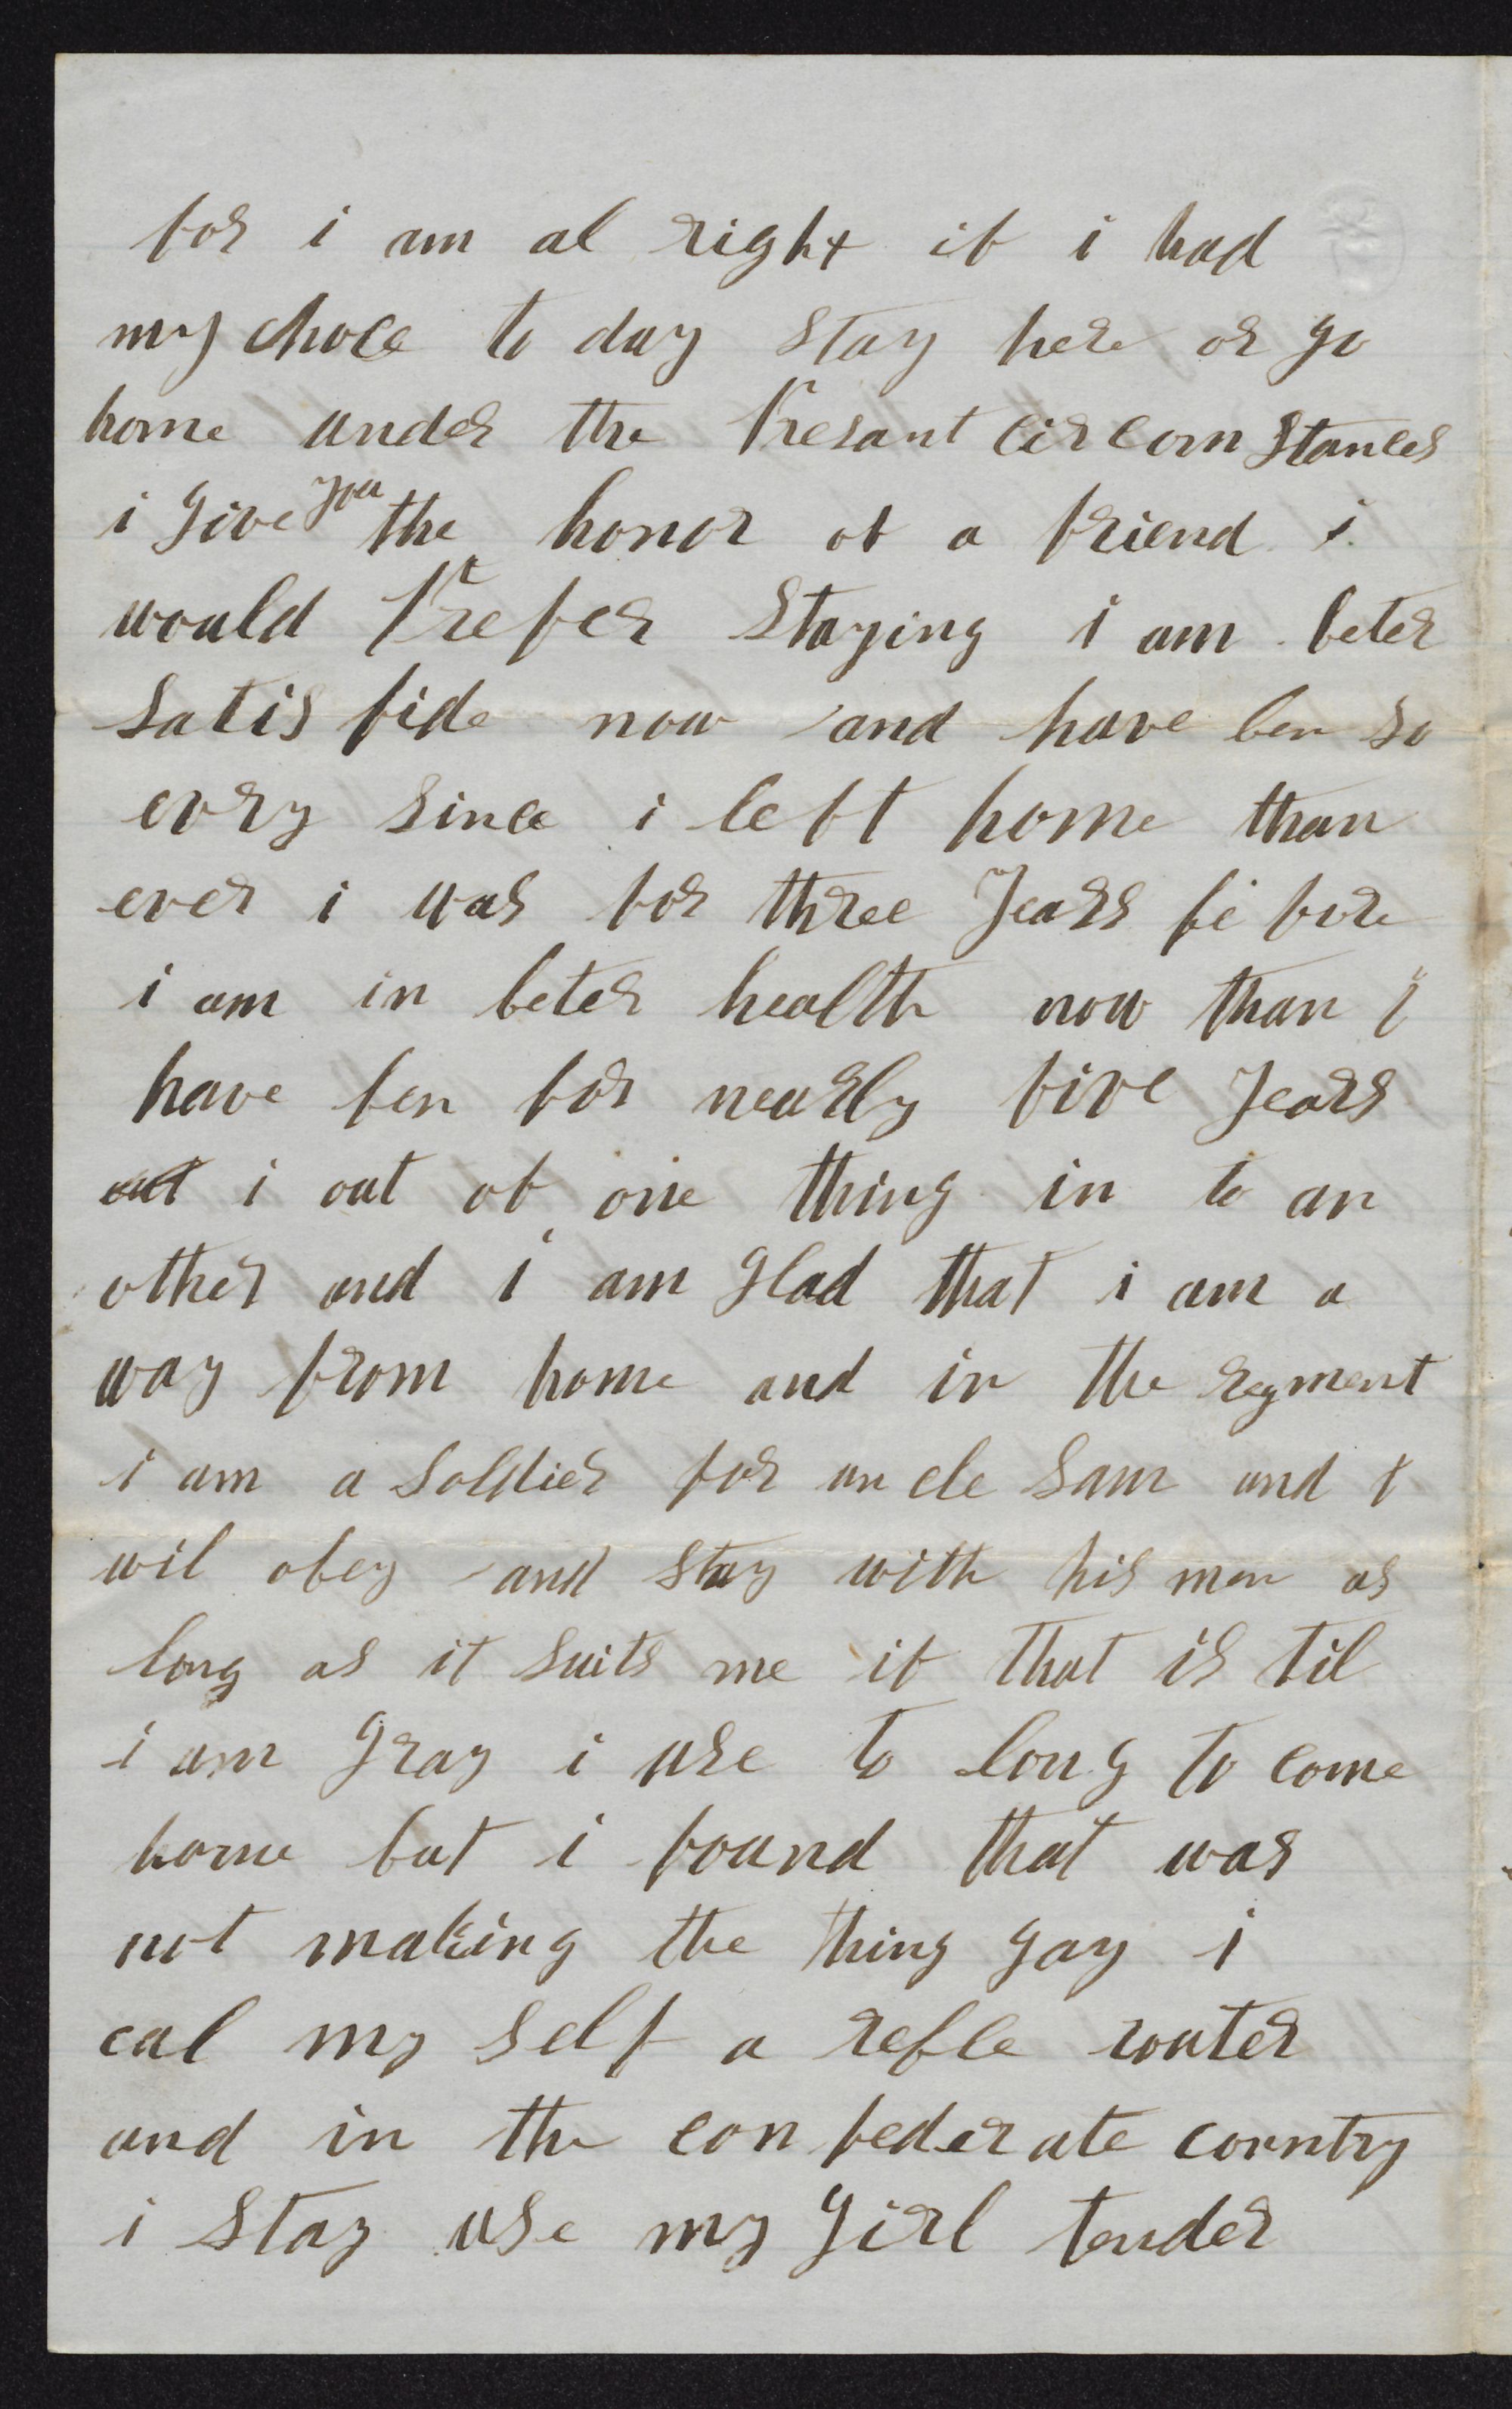 for i am al right if i had
my choce to day stay here or go
home under the Presant circom stances
i give you the honor of a friend i
would Prefer staying i am beter
satis fide now and have ben so
evry since i left home than
ever i was for three years be fore
i am in beter health now than i
have ben for nearly five years
out i out of one thing in to an
other and i am glad that i am a
way from home and in the regment
i am a soldier for un cle sam and i
wil obey and stay with his men as
long as it suits me if that is til
i am gray i use to long to come
home but i found that was
not making the thing gay i
cal my self a refle
and in the con federate corntry
i stay use my girl tender